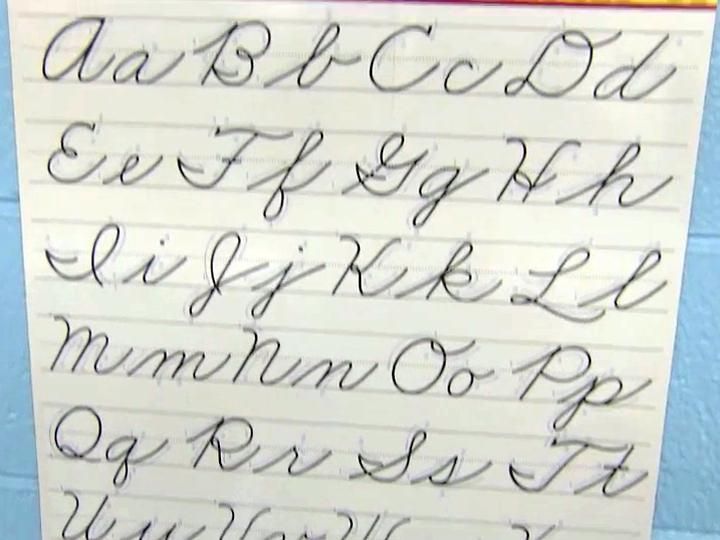 Aa Bb Cc Dd
Ee Ff Gg Hh
Ii Jj Kk Ll
Mm Nn Oo Pp
Qq Rr Ss Tt
Uu Vv